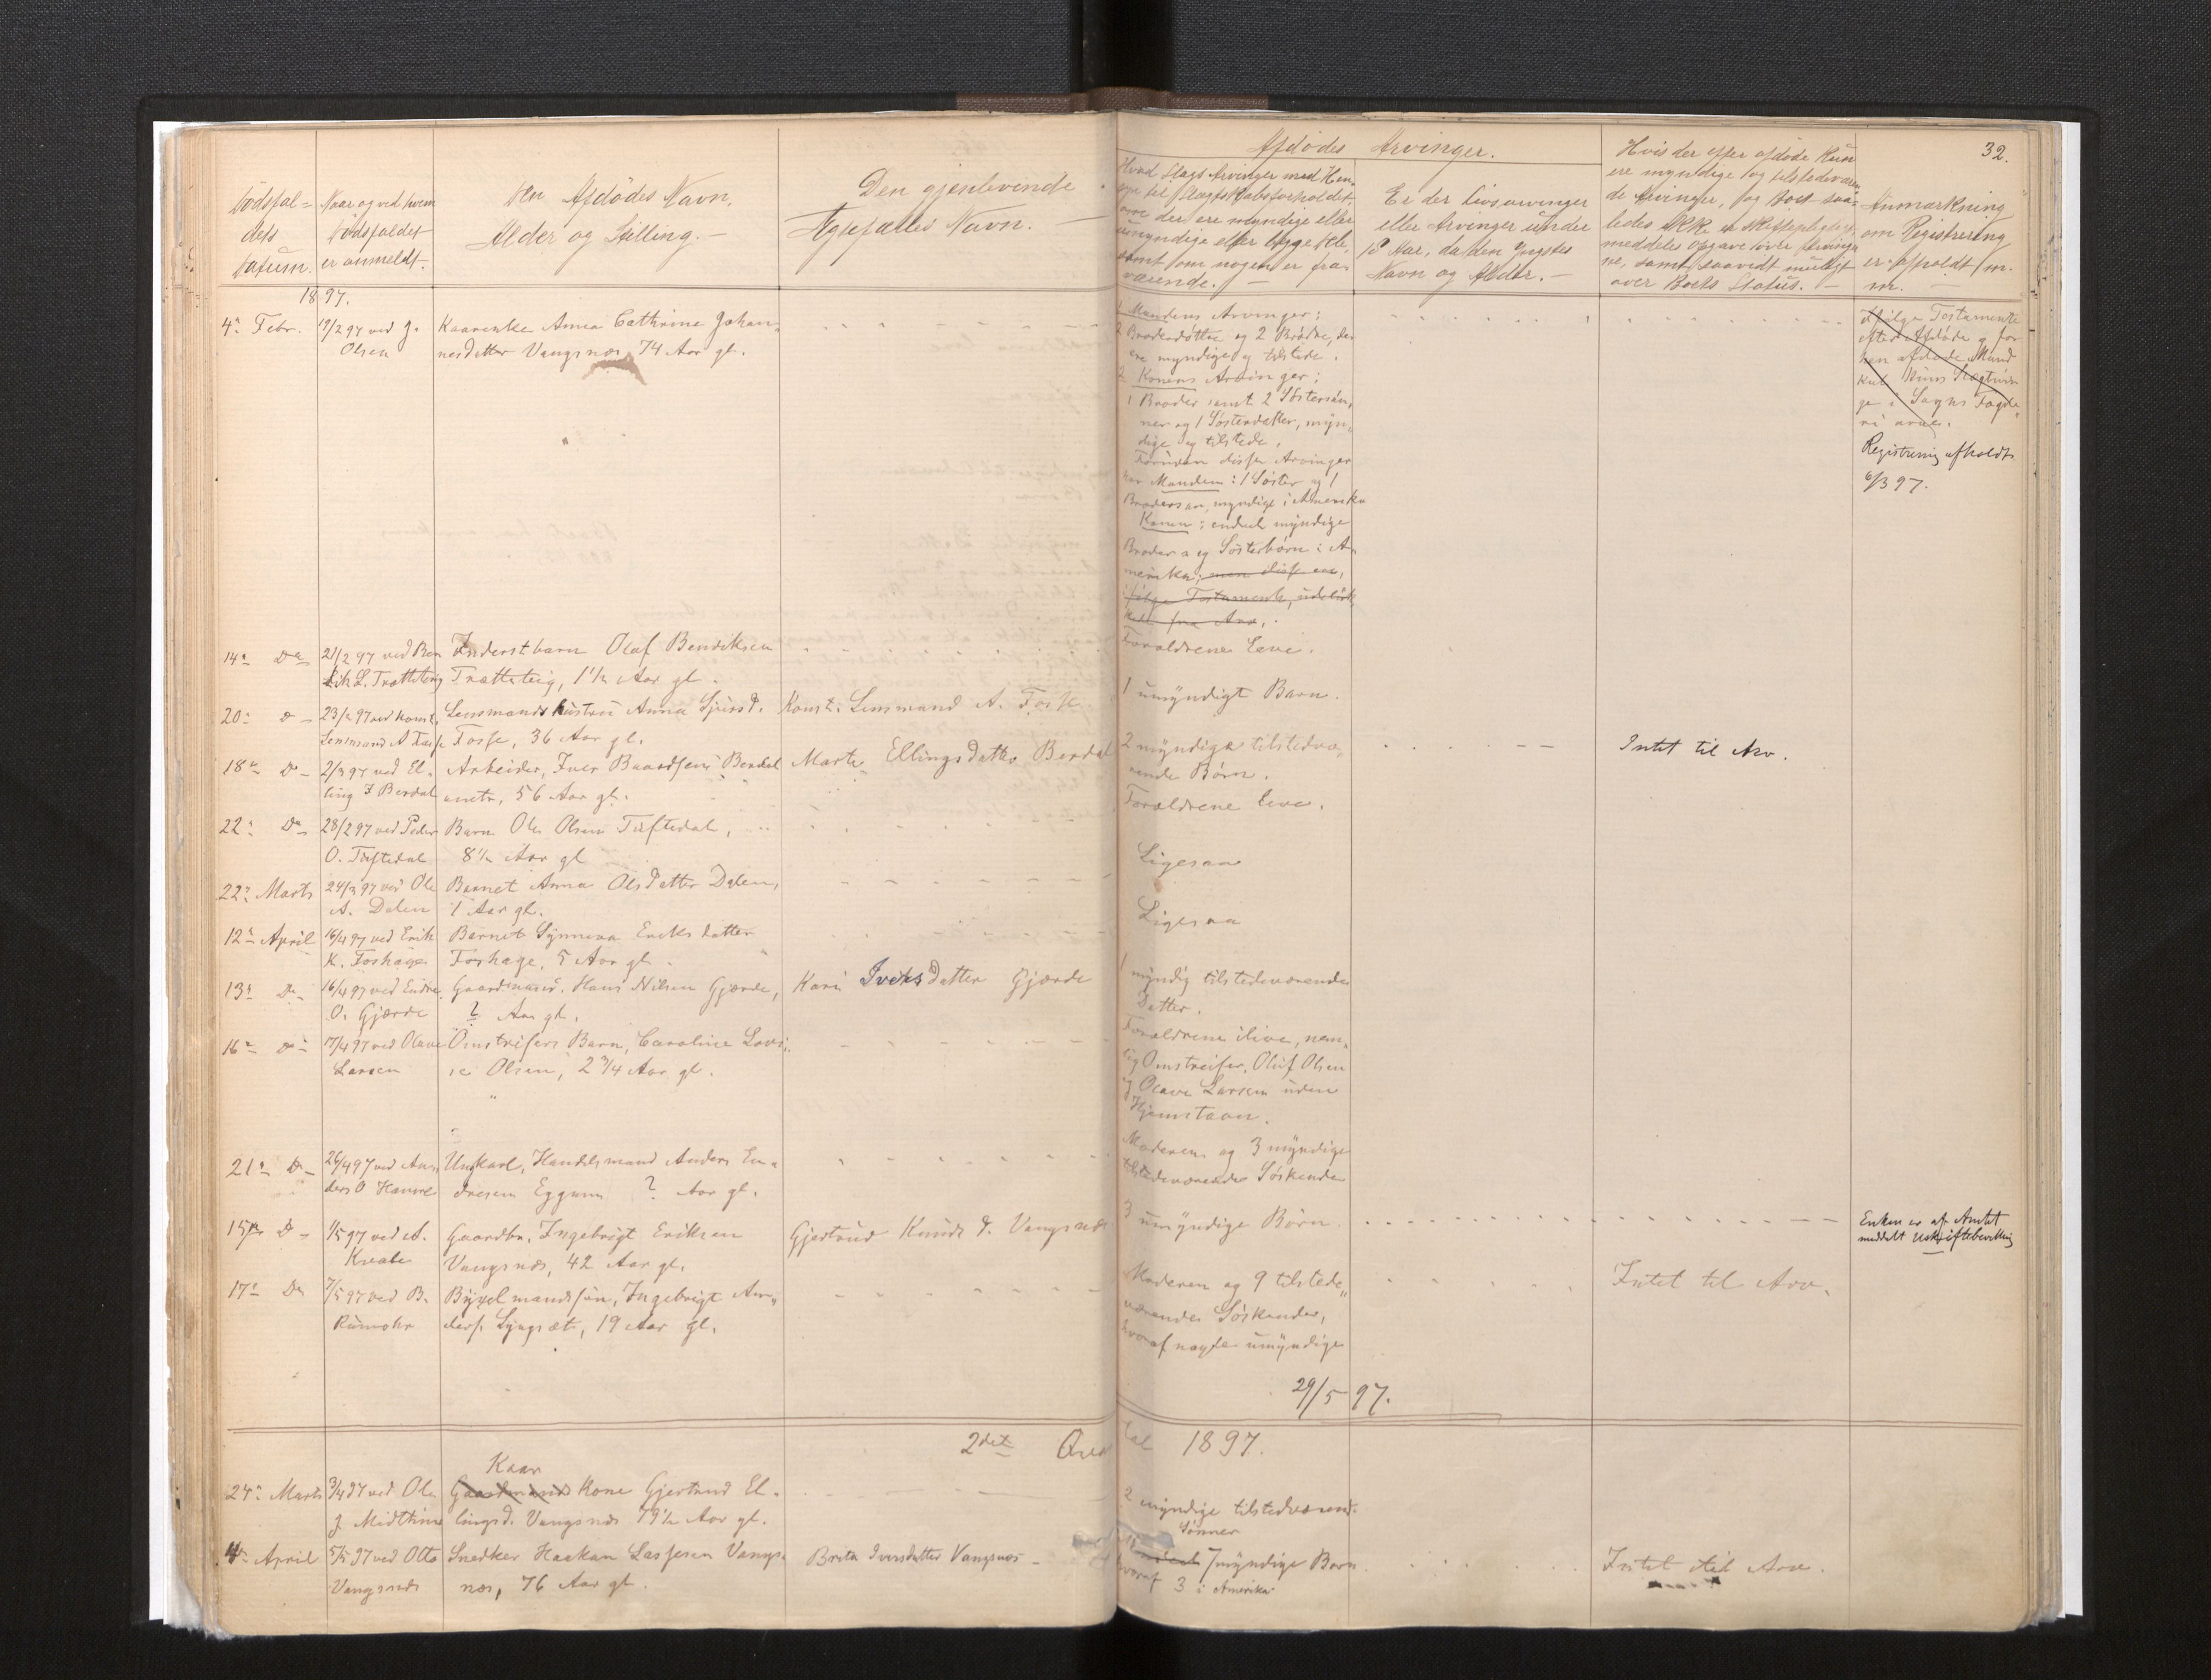 32.
Dødsfal-
dets
Datum.
Naar og ved hvem
Dødsfaldet
er anmeldt.
Den Afdødes Navn,
Alder og Stilling. —
Den gjenlevende
Ægtefælles Navn. —
Afdødes Arvinger.
Hvad Slags Arvinger med Hen-
syn til Slægtskabsforholdet,
om der ere myndige eller
umyndige eller begge Dele,
samt om nogen er fra-
værende. —
Er der Livsarvinger
eller Arvinger under
18 Aar, da den yngstes
Navn og Alder. —
Hvis der efter afdøde kun
ere myndige og tilstedeværen-
de Arvinger, og Boet saa-
ledes ikke er skiftepligtig,
meddeles Opgave over Arvinger-
ne, samt saavidt muligt
over Boets Status. —
Anmærkning
om Registrering
er afholdt m.
m. —
1897.
4de Febr.
19/2 97 ved J.
Olsen
Kaarenke Anna Cathrine Johan-
nesdatter Vangsnæs, 74 Aar gl.
1 Mandens Arvinger:
2 Broderdøttre og 2 Brødre, der
ere myndige og tilstede.
2 Konens Arvinger:
1 Broder samt 2 Søstersøn-
ner og 1 Søsterdatter, myn-
dige og tilstede.
Foruden disse Arvinger
har Manden: 1 Søster og 1
Brodersøn, myndige i Amerika
Konen: endel myndige
Broder- og Søsterbørn i A-
merika, men disse ere,
ifølge Testamente, udeluk-
ket fra Arv.
Ifølge Testamente
efter Afdøde og for
hen afdøde Mand
kun hines Slægtnin-
ge i Sogns Fogde-
ri arve.
Registrering afholdt
6/3 97.
14de Do
21/2 97 ved Ben
dik L. Trætteteig
Inderstbarn Olaf Bendiksen
Trætteteig, 1 1/2 Aar gl.
Forældrene leve.
20de Do
23/2 97 ved Konst.
Lensmand A Fosse
Lensmands Hustru Anna Sjursd.
Fosse, 36 Aar gl.
Konst. Lensmand A. Fosse
1 umyndigt Barn.
18de Do
2/3 97 ved El-
ling I Berdal
Arbeider, Iver Baardsen Berdal
56 Aar gl.
Marte Ellingsdatter Berdal
2 myndige tilstedevæ-
rende Børn.
Intet til Arv.
22de Do
28/2 97 ved Peder
O. Tuftedal
Barn Ole Olsen Tuftedal,
8 1/2 Aar gl
Forældrene leve.
22de Marts
24/3 97 ved Ole
A. Dalen
Barnet Anna Olsdatter Dalen,
1 Aar gl.
Ligesaa
12te April
16/4 97 ved Erik
K. Foshage
Barnet Synneva Eriksdatter
Foshage, 5 Aar gl.
Ligesaa
13de Do
16/4 97 ved Endre
O. Gjærde
Gaardmand. Hans Nilsen Gjærde,
? Aar gl.
Kari Iversdatter Gjærde
1 myndig tilstedeværende
Datter.
16de Do
17/4 97 ved Olava
Larsen
Omstreifers Barn, Caroline Lovi-
se Olsen, 2 3/4 Aar gl.
Forældrene ilive, nem-
lig Omstreifer, Oluf Olsen
og Olava Larsen uden
Hjemstavn.
21de Do
26/4 97 ved An-
ders O Hamre
Ungkarl, Handelsmand Anders En-
dresen Eggum ? Aar gl.
Moderen og 3 myndige
tilstedeværende Søskende
15de Do
1/5 97 ved A.
Kvale
Gaardbr. Ingebrigt Eriksen
Vangsnæs, 42 Aar gl.
Gjertrud Knuds d. Vangsnæs
3 umyndige Børn.
Enken er af Amtet
meddelt Uskiftebevilling
17de Do
7/5 97 ved B.
Rumohr
Bygselmandssøn, Ingebrigt An-
ders. Lyngsæt, 19 Aar gl.
Moderen og 9 tilstede-
værende Søskende,
hvoraf nogle umyndige
Intet til Arv.
29/5 97.
2det Qvartal 1897.
24de Marts
3/4 97 ved Ole
J. Midthun
Kaar
Gaardmands Kone Gjertrud El-
lingsd. Vangsnæs 79 1/2 Aar gl.
2 myndige tilstedeværend.
Sønner
4de April
5/5 97 ved Otto
Vangsnæs
Snedker Haakon Lassesen Vangs-
næs, 76 Aar gl.
Brita Iversdatter Vangsnæs
7 myndige Børn
hvoraf 3 i Amerika
Intet til Arv.